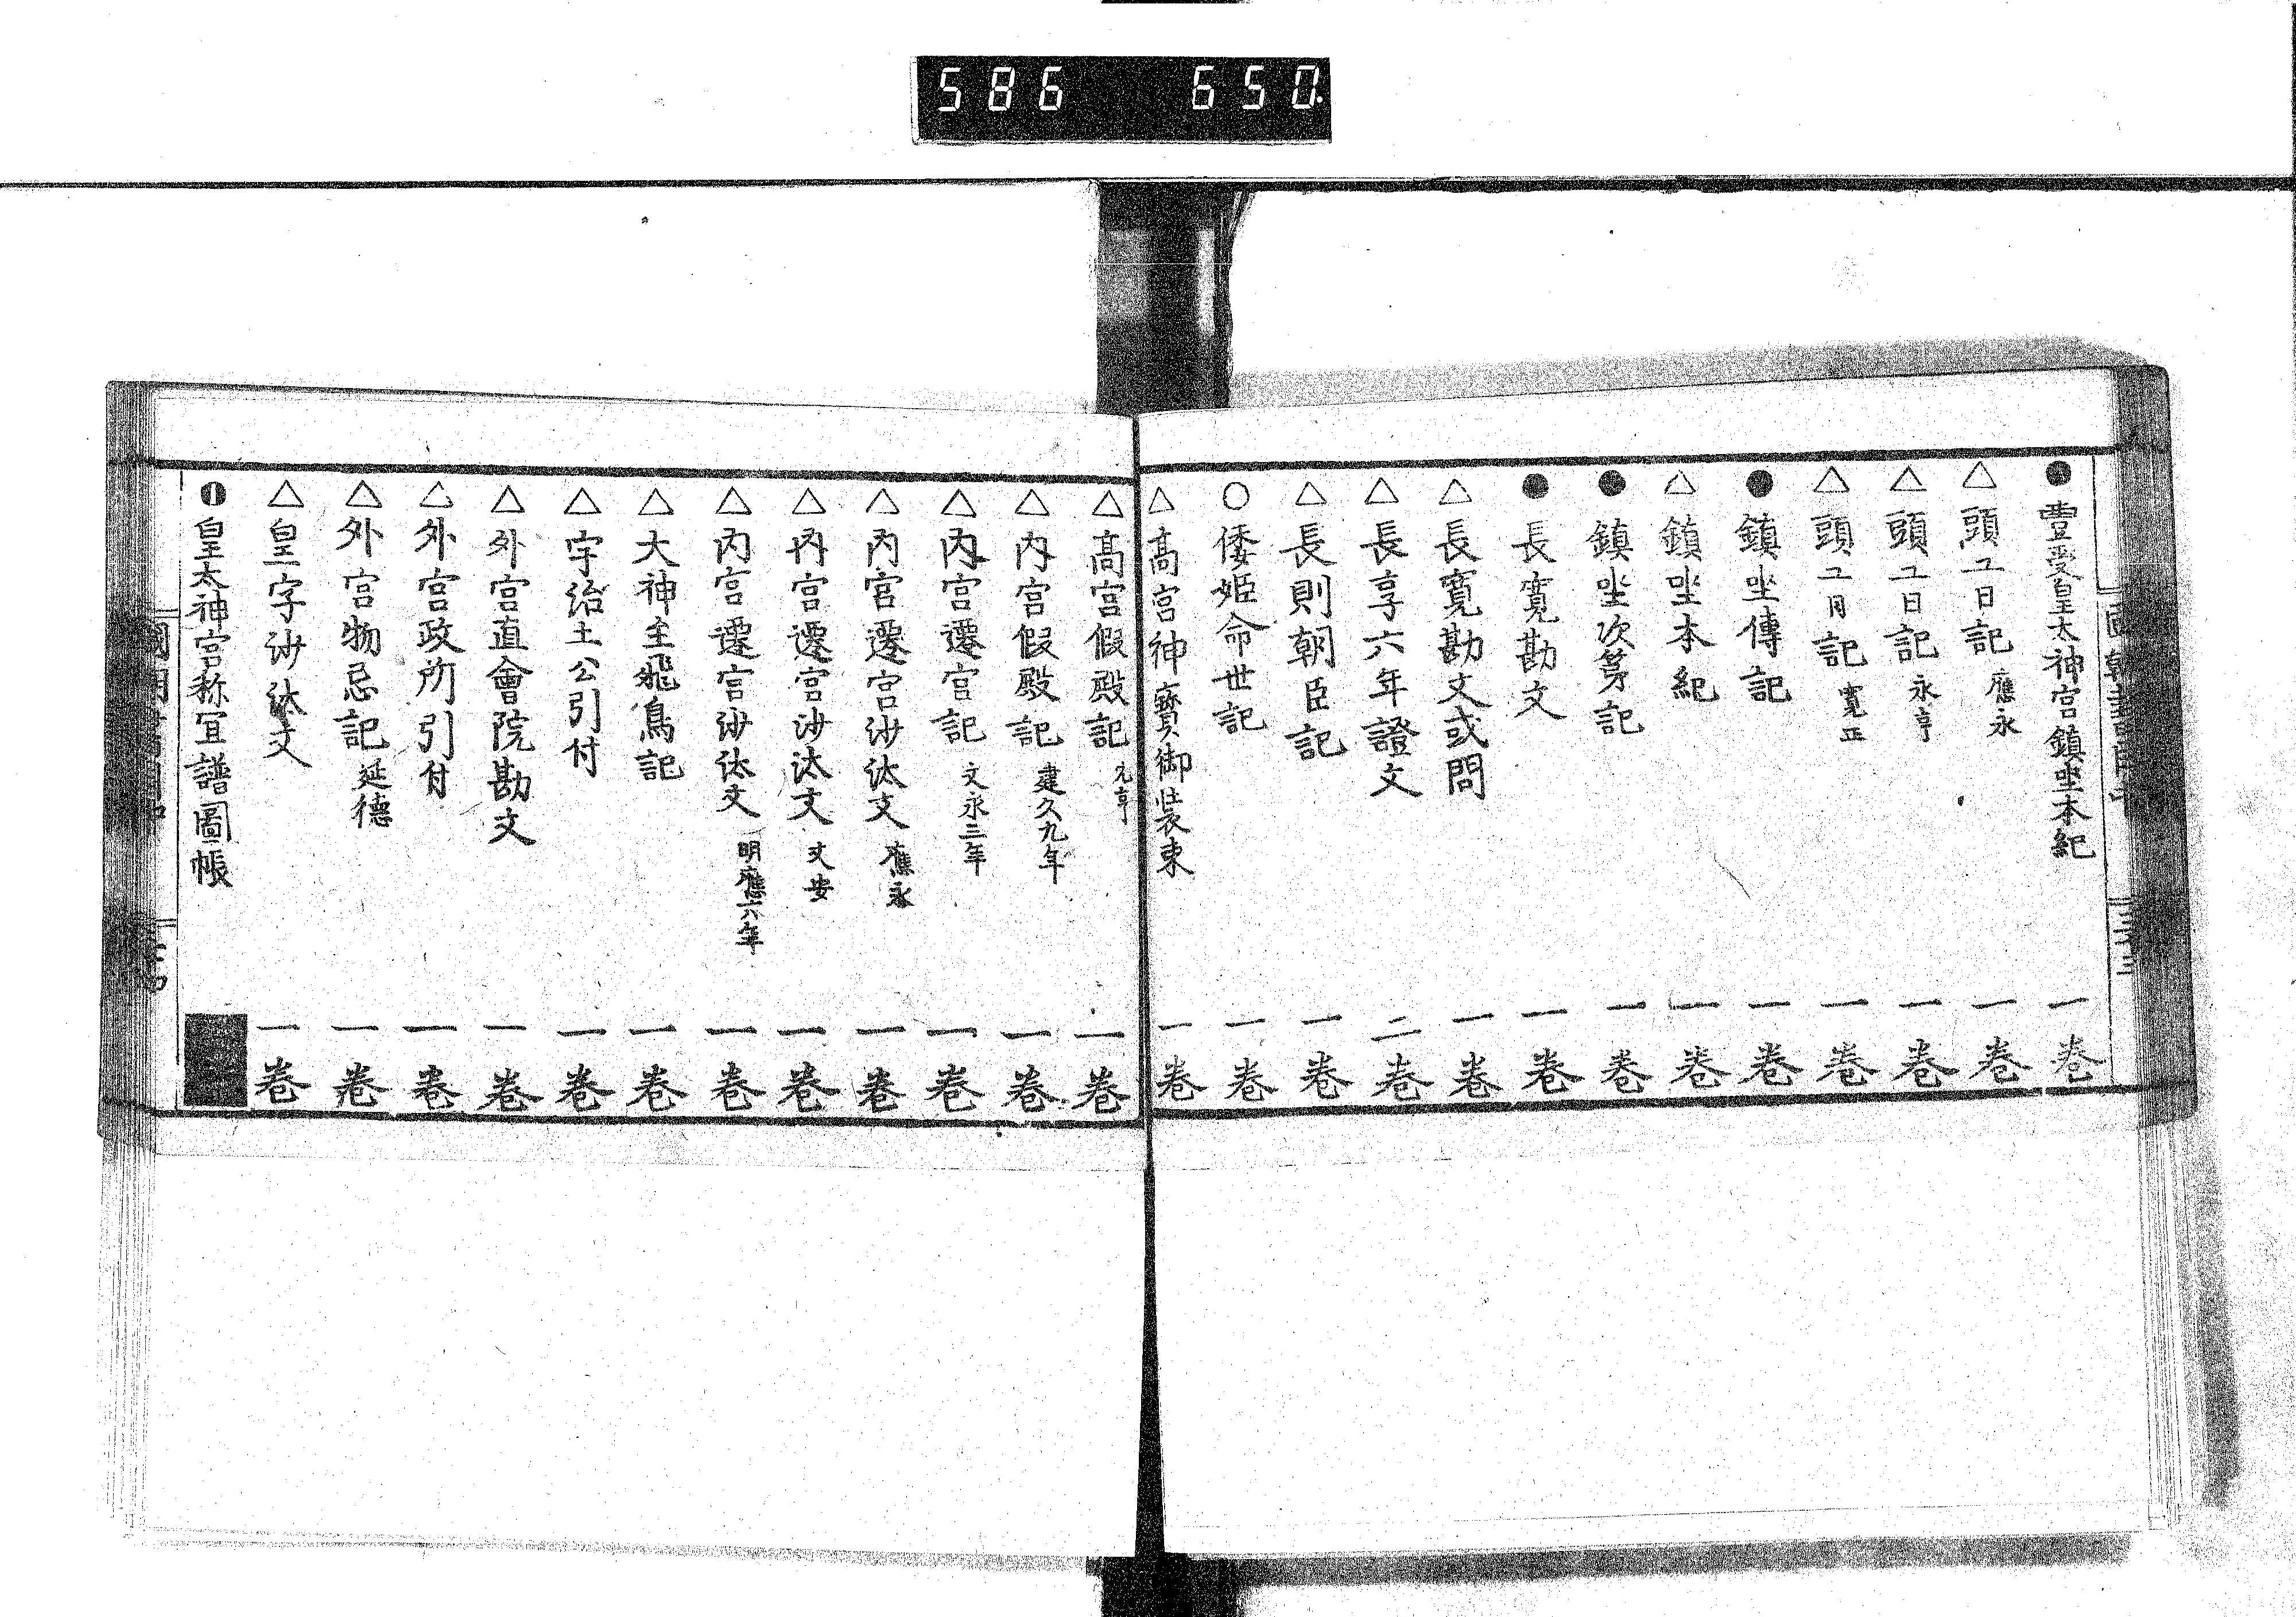 586 650.
●豐受皇太神宮鎮坐本紀 一卷
△頭工日記 應永 一卷
△頭工日記 永享 一卷
△頭工日記 寬正 一卷
●鎮坐傳記 一卷
△鎮坐本紀 一卷
●鎮坐次第記 一卷
●長寬勘文 一卷
△長寬勘文或問 一卷
△長享六年證文 二卷
△長則朝臣記 一卷
○倭姬命世記 一卷
△高宮神寶御裝束 一卷
△高宮假殿記 元亨 一卷
△內宮假殿記 建久九年 一卷
△內宮遷宮記 文永三年 一卷
△內宮遷宮沙汰文 應永 一卷
△內宮遷宮沙汰文 文安 一卷
△內宮遷宮沙汰文 明應六年 一卷
△大神主飛鳥記 一卷
△宇治土公引付 一卷
△外宮直會院勘文 一卷
△外宮政所引付 一卷
△外宮物忌記 延德 一卷
△皇字沙汰文 一卷
皇太神宮祢冝譜圖帳